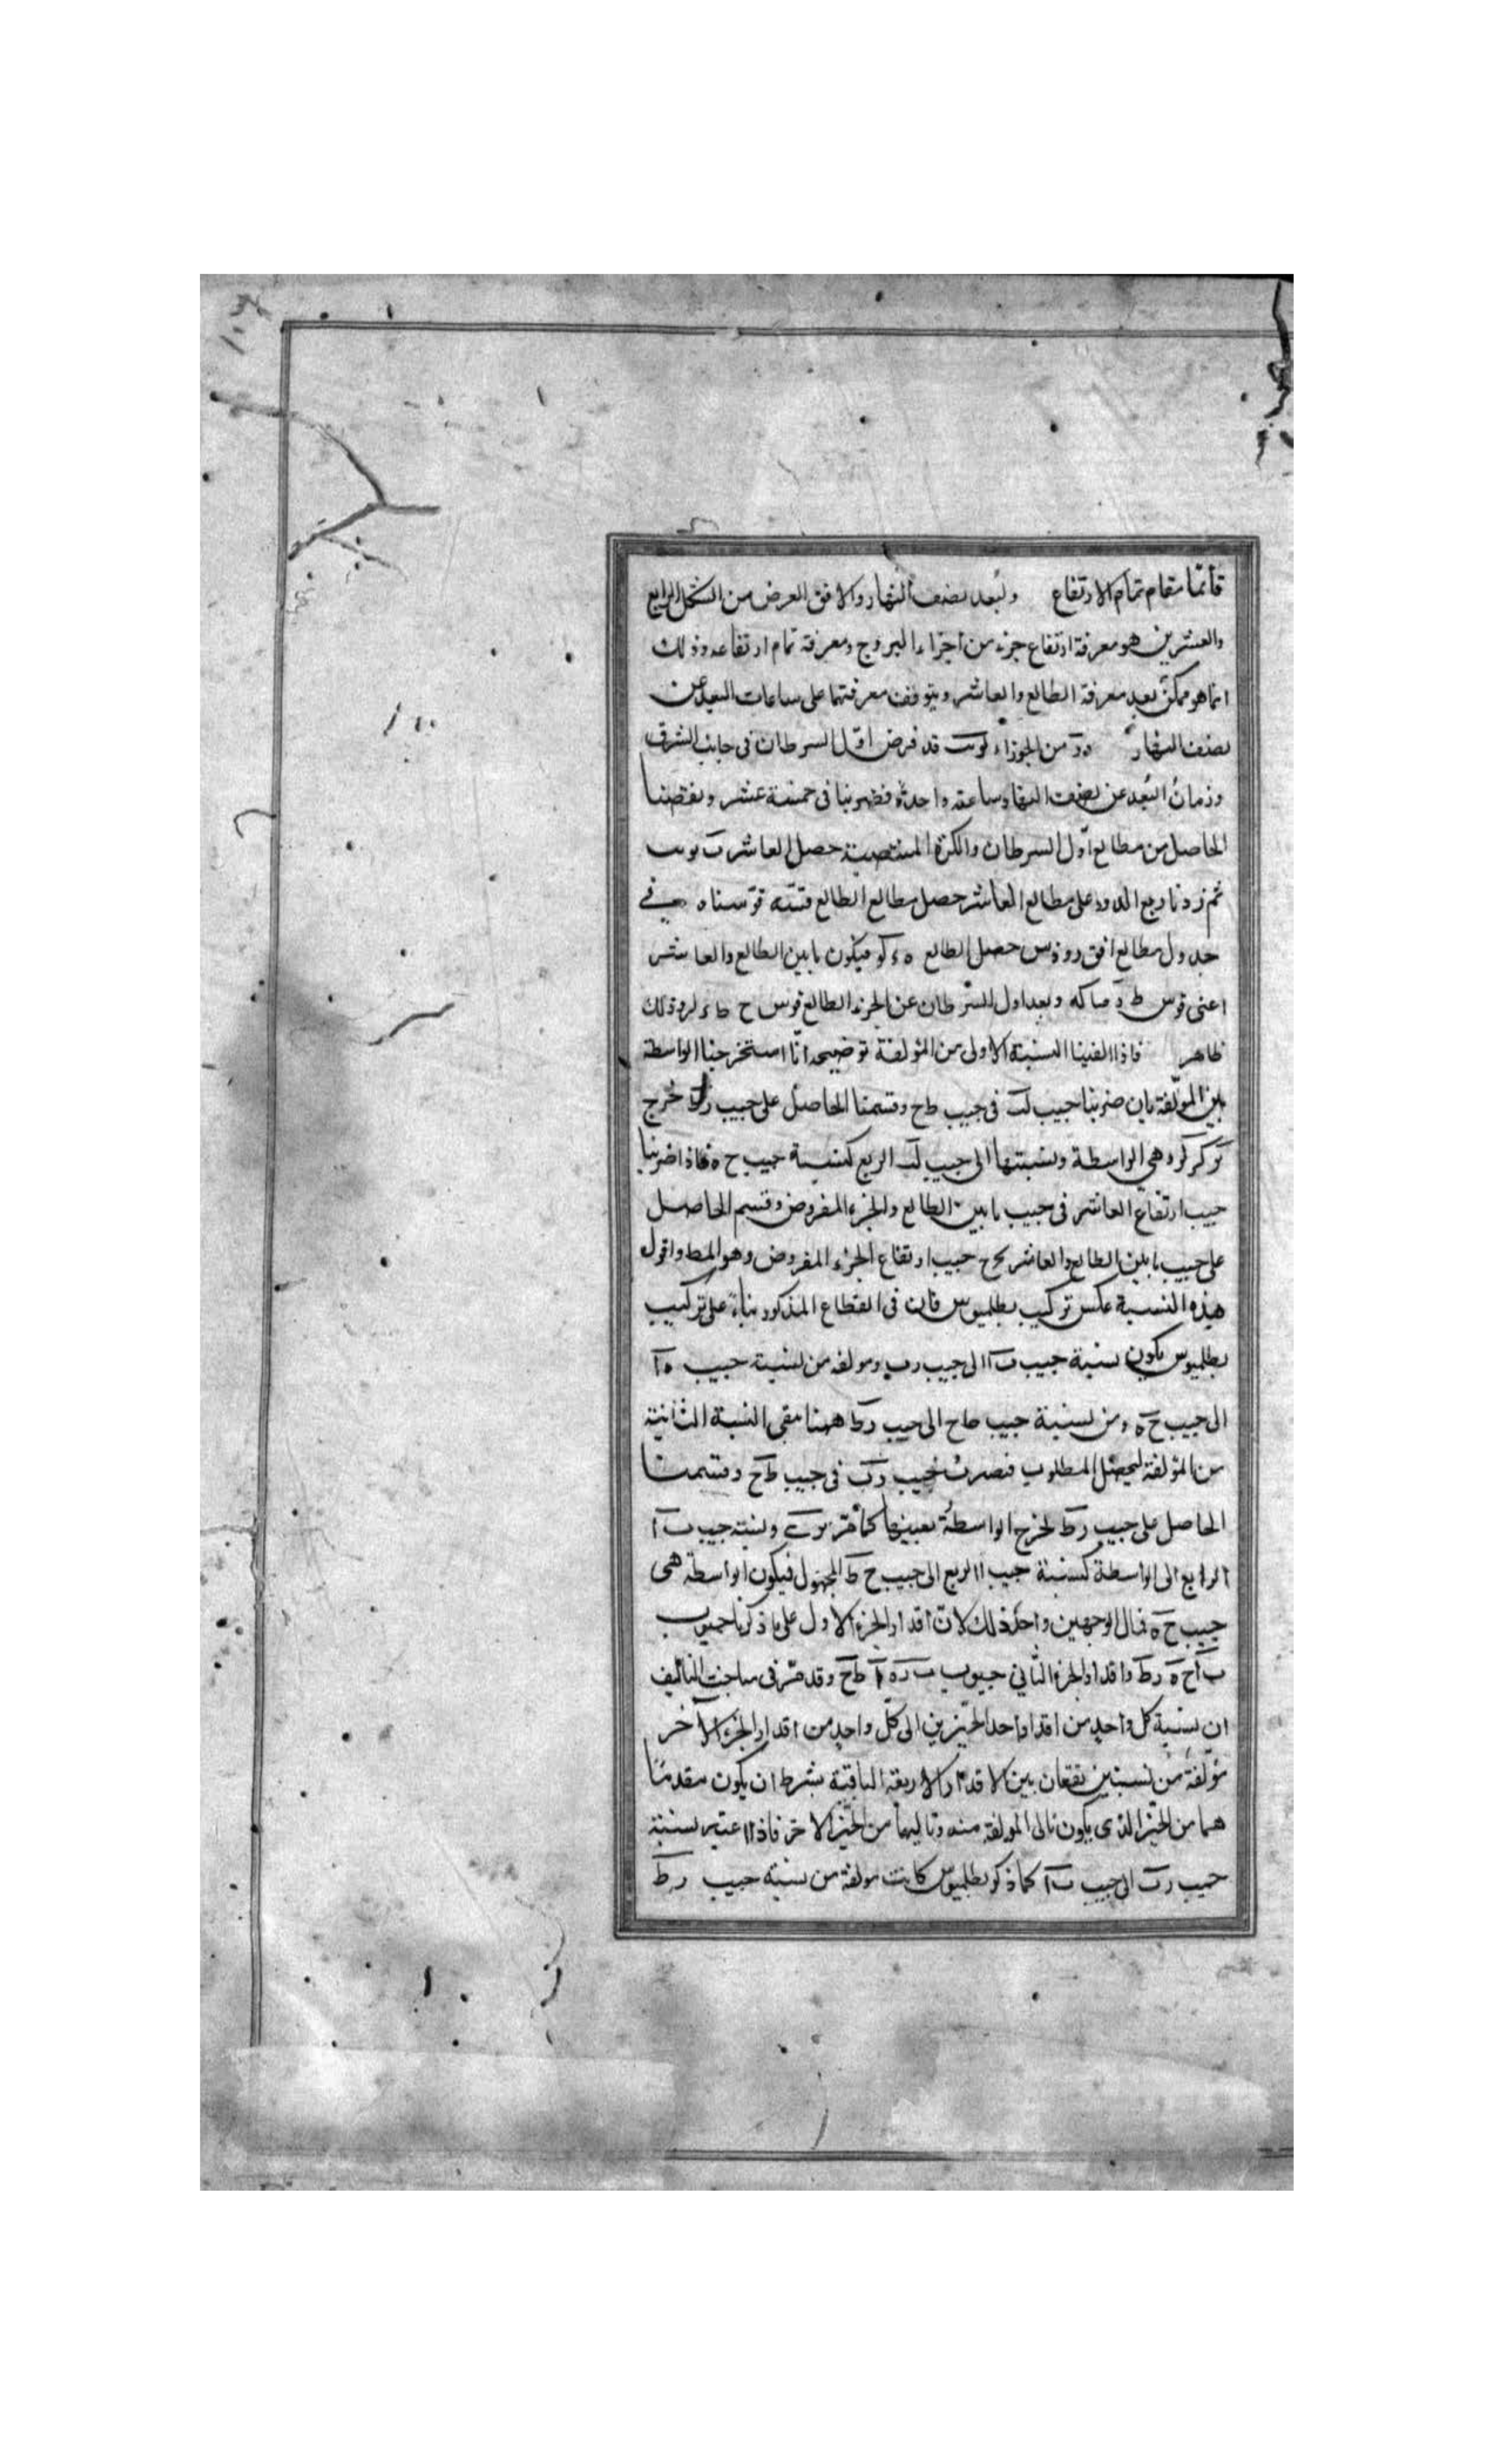 قائما مقام تمام الارتفاع ولبعد نصف النهار والافق العرض من الشكل الرابع
والعشرين هو معرفة ارتفاع جزء من اجزاء البروج ومعرفة تمام ارتفاعه وذلك
انما هو ممكن بعد معرفة الطالع والعاشر ويتوقف معرفتهما على ساعات البعد عن
نصف النهار من الجوزاء قد فرض اول السرطان فى جانب الشرق
وزمان البعد عن نصف النهار ساعة واحدة فضربنا فى خمسة عشر ونقصنا
الحاصل من مطالع اول السرطان والكرة المنتصبة حصل العاشر
ثم زدنا ربع الدور على مطالع العاشر حصل مطالع الطالع قوسناه فى
جدول مطالع افق رودس حصل الطالع فيكون ما بين الطالع والعاشر
اعنى قوس وبعد اول السرطان عن الجزء الطالع قوس ح ط وذلك
ظاهر فاذا القينا النسبة الاولى من المؤلفة توضيحه انا استخرجنا الواسطة
بين المؤلفة بان ضربنا جيب فى جيب طح وقسمنا الحاصل على جيب رط خرج
وهى الواسطة ونسبتها الى جيب الربع كنسبة جيب ح ه فاذا ضربنا
جيب ارتفاع العاشر فى جيب ما بين الطالع والجزء المفروض وقسم الحاصل
على جيب ما بين الطالع والعاشر يخرج جيب ارتفاع الجزء المفروض وهو المط واقول
هذه النسبة عكس تركيب بطلميوس فان فى القطاع المذكور بناء على تركيب
بطلميوس يكون نسبة جيب ب آ الى جيب رب مولفه من نسبة جيب ه آ
الى جيب ح ه ومن نسبة جيب طح الى جيب رط ههنا مقى النسبة الثانية
من المؤلفة ليحصل المطلوب فنضرب جيب رب فى جيب طح وقسمنا
الحاصل على جيب رط لخرج الواسطة بعينها كما مر ونسبة جيب ب آ
الرابع الى الواسطة كنسبة جيب الربع الى جيب ح ط المجهول فيكون الواسطة هى
جيب ح ه فمال الوجهين واحد ذلك لان اقدار الجزء الاول على ما ذكرنا جيوب
ب آ ح ه رط واقدار الجزء الثانى جيوب ب ر ه آ طح وقد مر فى مباحث التاليف
ان نسبة كل واحد من اقدار احد الحيزين الى كل واحد من اقدار الجزء الآخر
مؤلفة من نسبتين تقعان بين الاقدار الاربعة الباقية بشرط ان يكون مقدما
هما من الحيز الذى يكون تالى المولفة منه وتاليهما من الحيز الاخر فاذا اعتبر نسبة
جيب رب الى جيب ب آ كما ذكر بطلميوس كانت مولفة من نسبة جيب رط